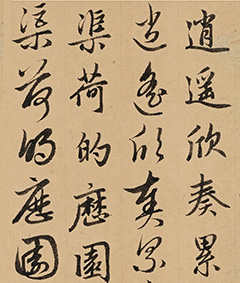 逍遥欣奏累
逍遥欣奏累
渠荷的歷園
渠荷的歷園